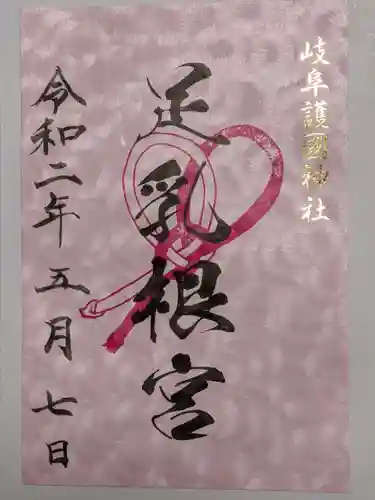 岐阜護國神社
足乳根宮
令和二年 五月 七日